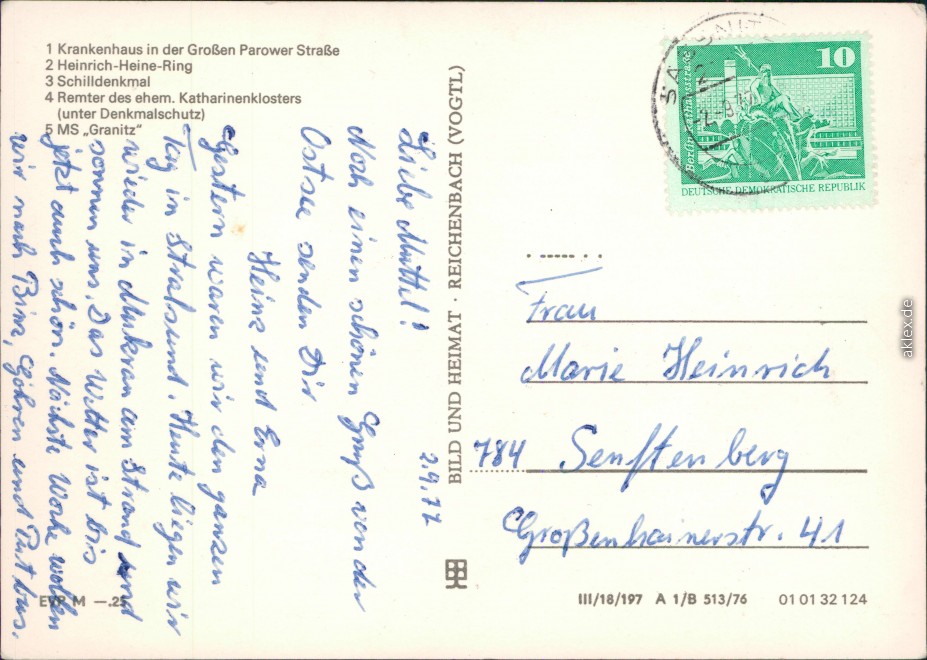 1 Krankenhaus in der Großen Parower Straße
2 Heinrich-Heine-Ring
3 Schilldenkmal
4 Remter des ehem. Katharinenklosters
(unter Denkmalschutz)
5 MS „Granitz“
Liebe Muttel! 2.9.77
Noch einen schönen Gruß von der
Ostsee senden Dir
Heinz und Erna
Gestern waren wir den ganzen
Tag in Stralsund. Heute liegen wir
wieder in Mukran am Strand und
sonnen uns. Das Wetter ist bis
jetzt auch schön. Nächste Woche wollen
wir nach Binz, Göhren und Putbus.
EVP M —.25
BILD UND HEIMAT · REICHENBACH (VOGTL)
SASSNITZ
2
-2.-9.77
10
DEUTSCHE DEMOKRATISCHE REPUBLIK
Frau
Marie Heinrich
784 Senftenberg
Großenhainerstr. 41
III/18/197 A 1/B 513/76 01 01 32 124
aklex.de